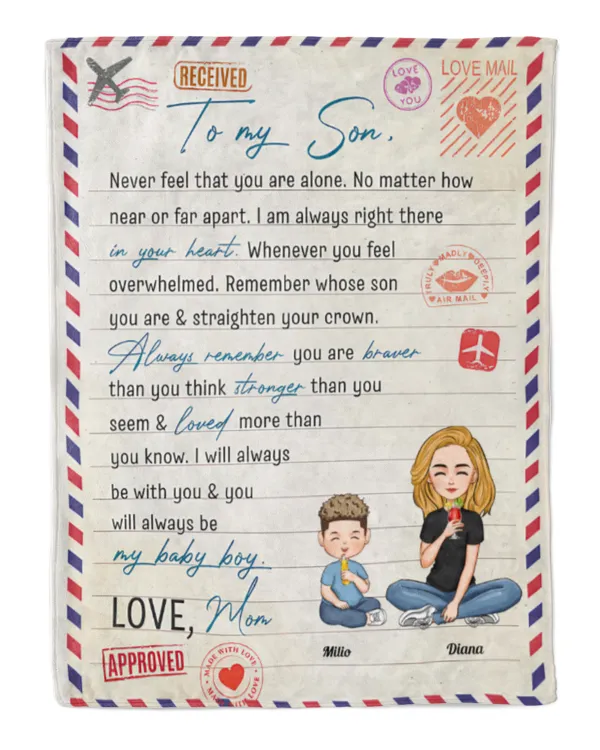 RECEIVED
LOVE YOU
LOVE MAIL
To my Son,
Never feel that you are alone. No matter how
near or far apart. I am always right there
in your heart. Whenever you feel
overwhelmed. Remember whose son
TRULY MADLY DEEPLY
AIR MAIL
you are & straighten your crown.
Always remember you are braver
than you think stronger than you
seem & loved more than
you know. I will always
be with you & you
will always be
my baby boy.
LOVE, Mom
Milio
Diana
APPROVED
MADE WITH LOVE
MADE WITH LOVE